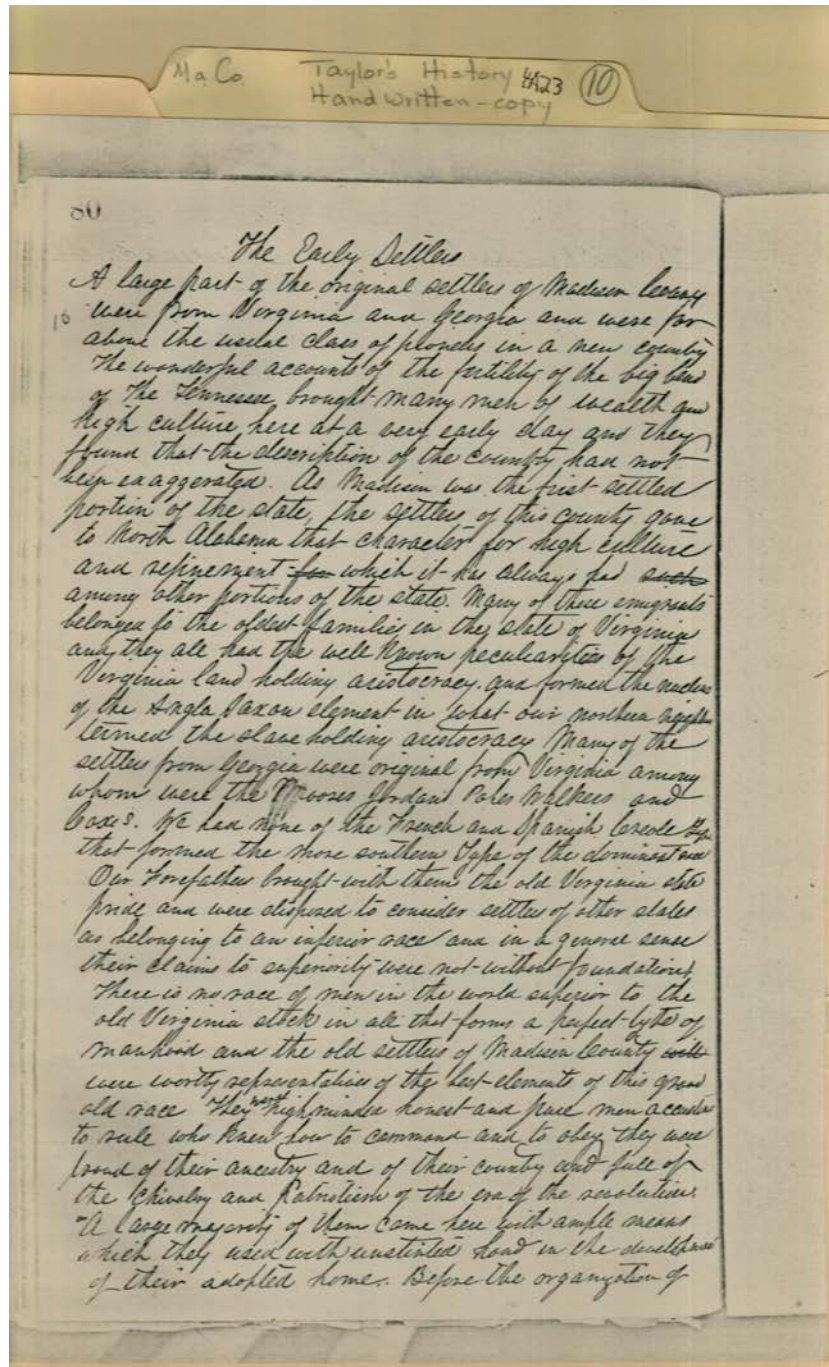 Ma. Co. Taylor's History 4A23 10
Handwritten - copy
80
The Early Settlers
A large part of the original settlers of Madison County
10 were from Virginia and Georgia and were far
above the usual class of pioneers in a new country
The wonderful accounts of the fertility of the big bend
of the Tennessee, brought many men of wealth and
high culture here at a very early day and they
found that the description of the country had not
been exaggerated. As Madison was the first settled
portion of the state, the settlers of this county gave
to North Alabama that character for high culture
and refinement for which it has always had such
among other portions of the state. Many of these emigrants
belonged to the oldest families in the state of Virginia
and they all had the well known peculiarities of the
Virginia land holding aristocracy. and formed the nucleus
of the Anglo Saxon element in what our northern
termed the slave holding aristocracy Many of the
settlers from Georgia were original from Virginia among
whom were the Moores Jordans Walkers and
Coxes. We had none of the French and Spanish Creole type
that formed the more southern Type of the dominant race
Our Forefathers brought with them the old Virginia state
pride and were disposed to consider settlers of other states
as belonging to an inferior race and in a general sense
their claims to superiority were not without foundation,
There is no race of men in the world superior to the
old Virginia stock in all that forms a perfect type of
manhood and the old settlers of Madison County will
were worthy representatives of the best elements of this grand
old race They were high minded honest and pure men
to rule who knew how to command and to obey they were
proud of their ancestry and of their country and full of
the Chivalry and Patriotism of the era of the revolution.
A large majority of them came here with ample means
which they used with unstinted hand in the development
of their adopted home. Before the organization of